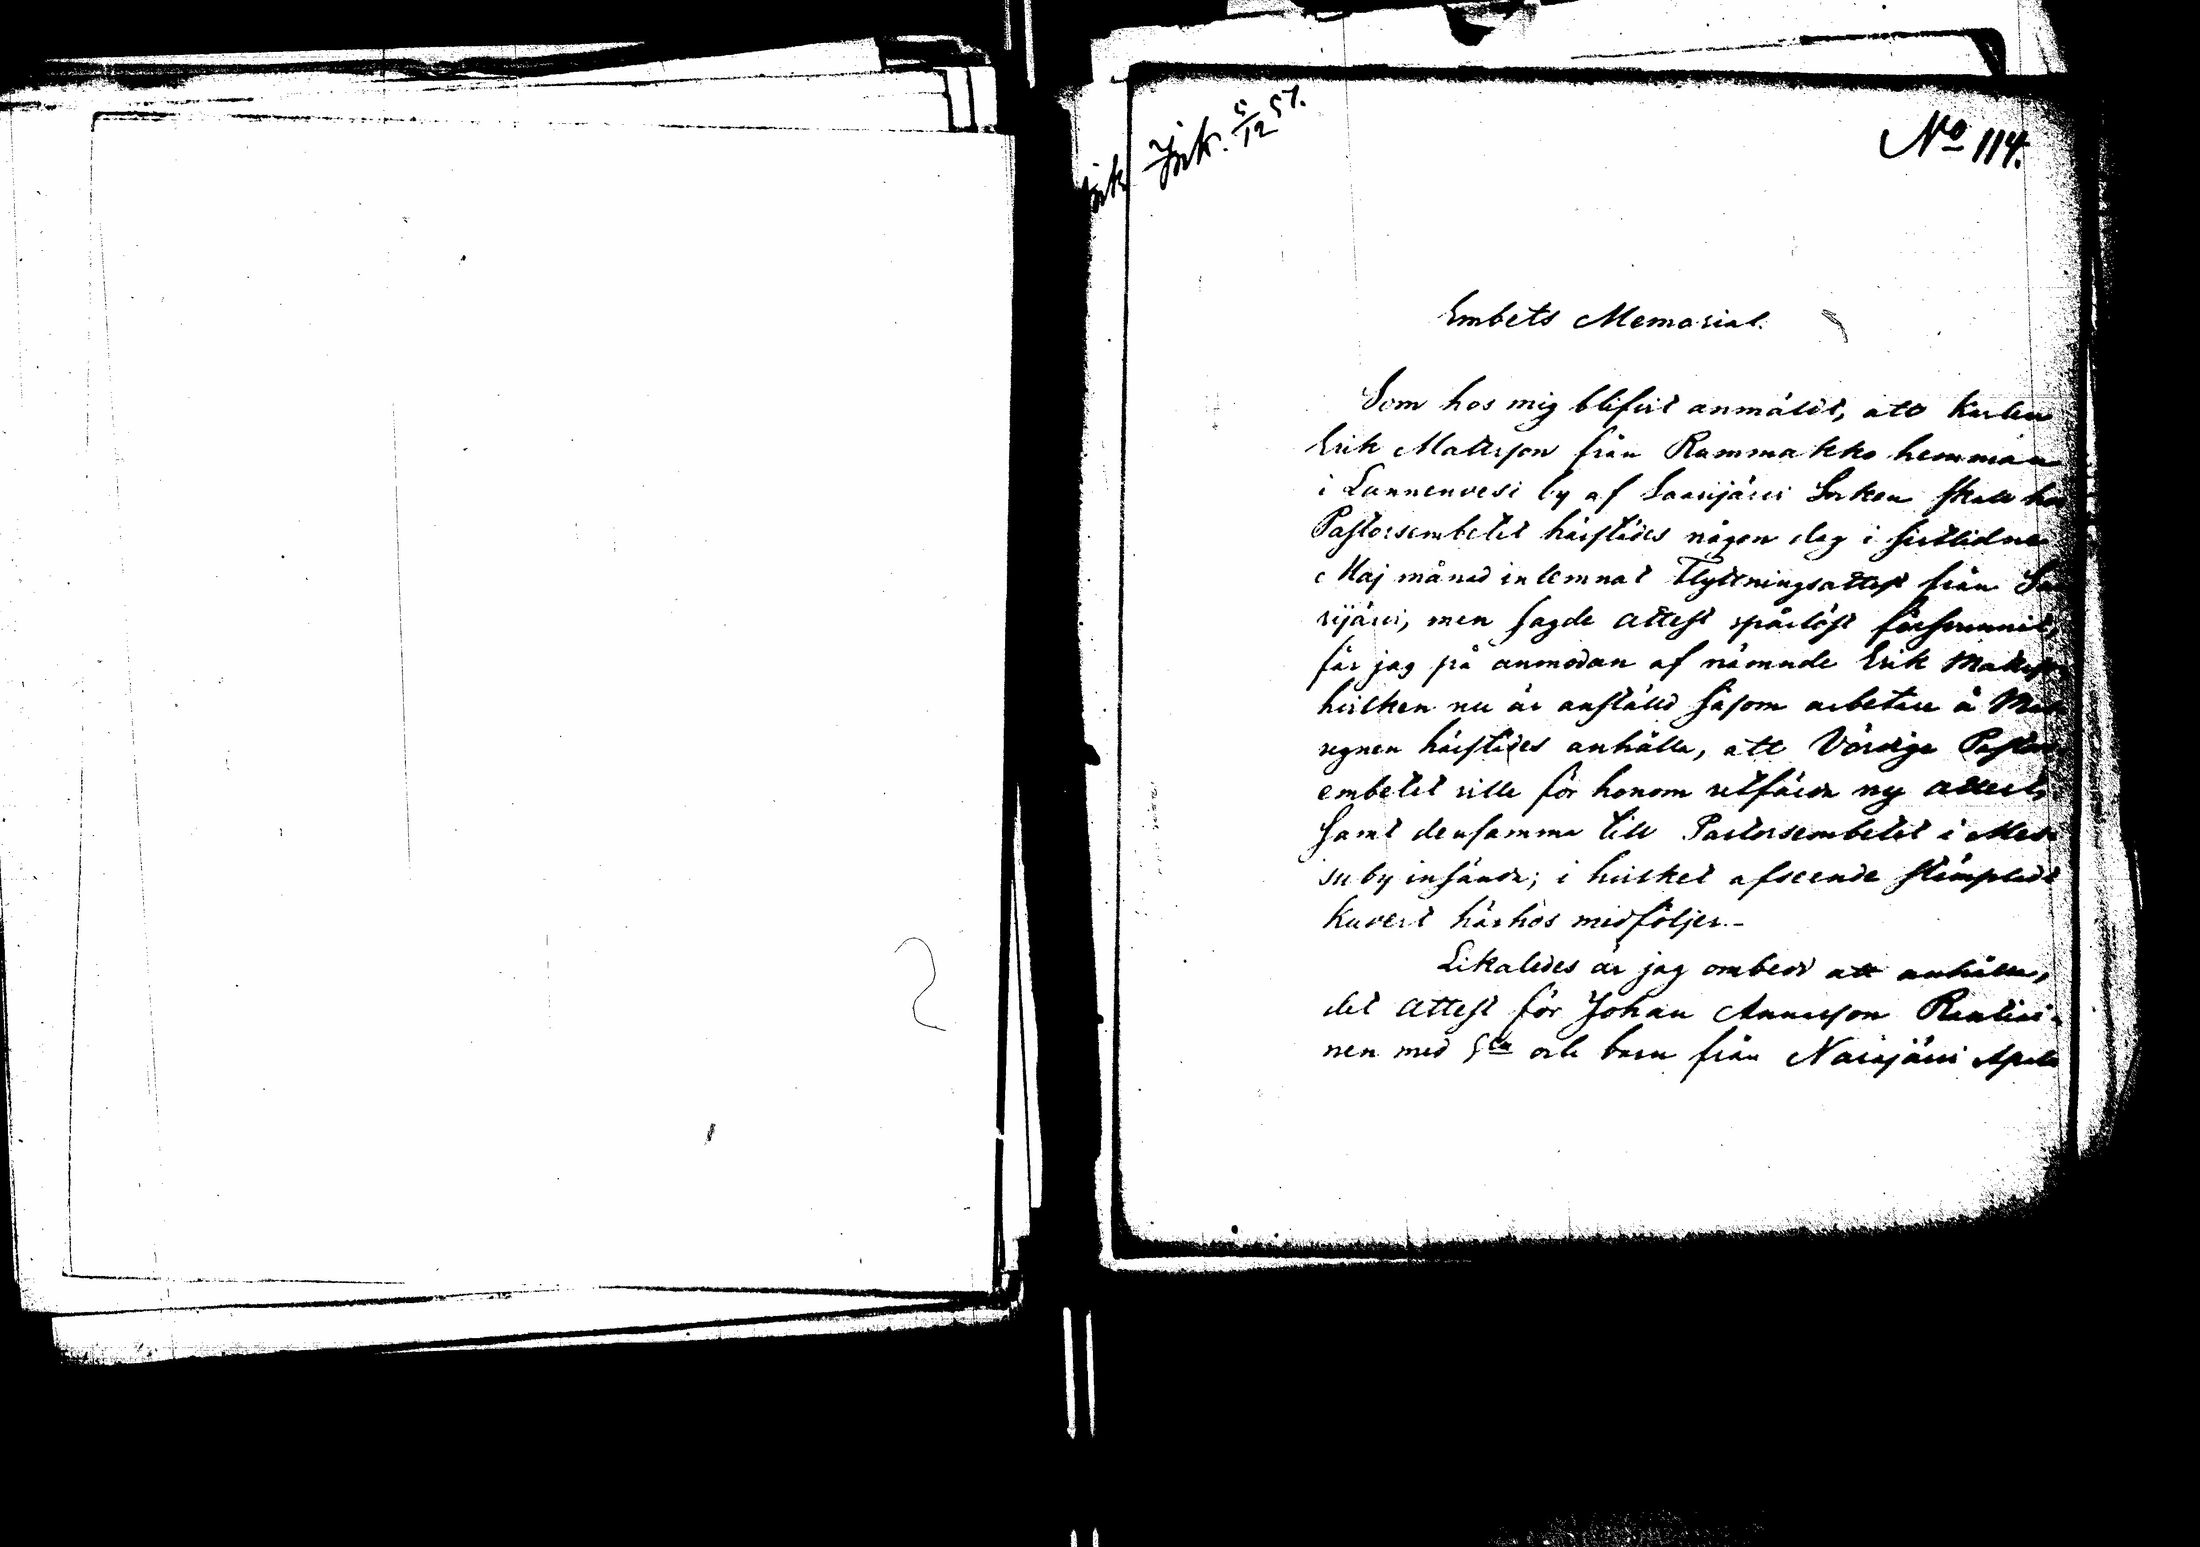 Ink. 5/12 57.
No 114.
Embets Memorial.
Som hos mig blifvit anmäldt, att Karlen
Erik Mattsson från Rammakko hemman
i Lannenvesi by af Saarijärvi Socken skall hos
Pastorsembetet härstädes någon dag i sistlidne
Maj månad inlemnat Flyttningsattest från Saa
rijärvi, men sagde attest spårlöst försvunnit,
får jag på anmodan af nämnde Erik Mattsson
hvilken nu är anstäld såsom arbetare å
ugnen härstädes anhålla, att Vördige Pastors
embetet ville för honom utfärda ny attest,
samt densamma till Pastorsembetet i Mess
uby insända; i hvilket afseende stämpladt
Kuvert härhos medföljer.-
Likaledes är jag ombedd att anhålla,
det attest för Johan Annasson Rautiai-
nen med och barn från Naarajärvi